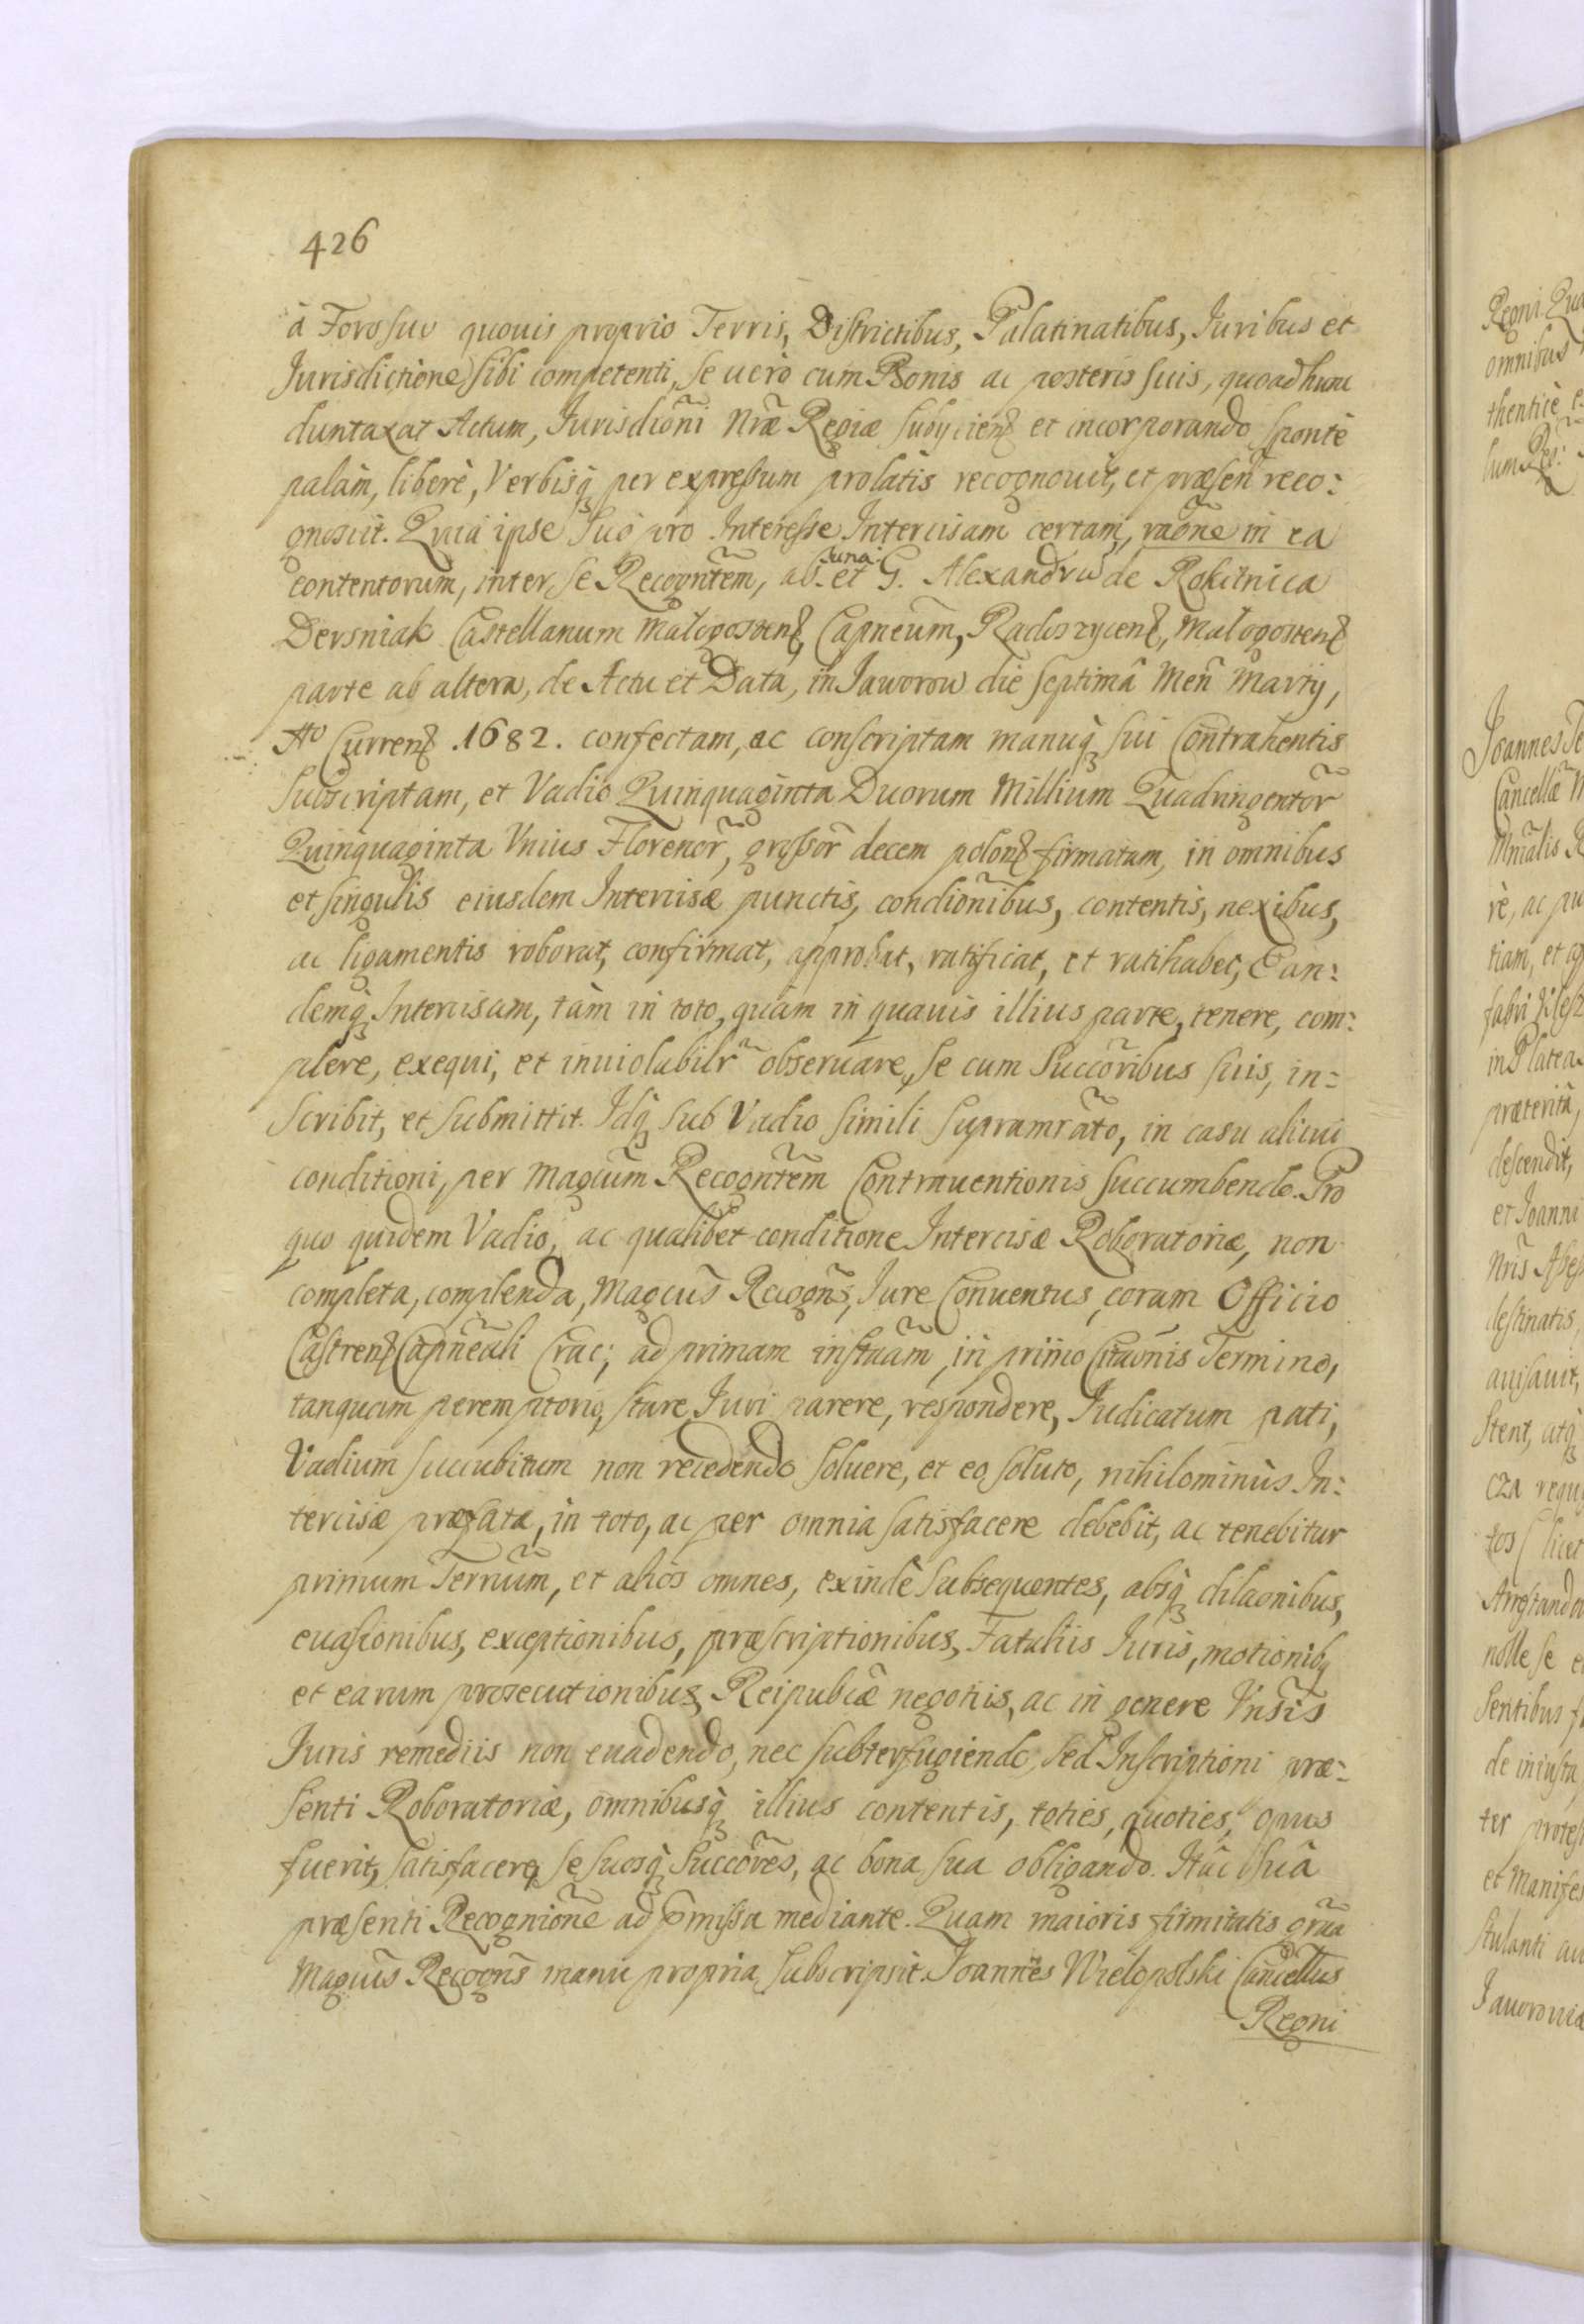 426
à Foro suo quouis proprio Terris, Districtibus, Palatinatibus, Iuribus et
Jurisdictione sibi competenti, se uerò cum Bonis ac posteris suis, quoad hunc
duntaxat Actum, Jurisdic̃oni Nr̃æ Regiæ subyciens et incorporando sponte
palàm, liberè, Verbisq́ per expressum prolatis recognouit, et præsen̄ reco:
gnoscit. Quia ipse suo pro Interesse Intercisam certam, rãone in ea
contentorum, inter se Recogñtem, ab una: et G. Alexandrũ de Rokitnica
Dersniak Castellanum Małogostens, Capñeum, Radoszycens, Małogostens
parte ab altera, de Actu et Data, in Jaworow die septimâ Meñ Martij,
Aõ Currens .1682. confectam, ac conscriptam manuq́ sui Contrahentis
Subscriptam, et Vadio Quinquaginta Duorum Millium Quadringentor̃
Quinquaginta Vnius Florenor̃, grossor̃ decem polons firmatam, in omnibus
et singulis eiusdem Intercisæ punctis, condiõnibus, contentis, nexibus,
ac ligamentis roborat, confirmat, approbat, ratificat, et ratihabet, Ean:
demq́ Intercisam, tàm in toto, quàm in quauis illius parte, tenere, com:
plere, exequi, et inuiolabilr̃ obseruare, se cum Succõribus suis, in=
scribit, et submittit. Idq́ sub Vadio simili supramr̃ato, in casu alicui
conditioni, per Magcũm Recogñtem Contrauentionis succumbendo. Pro
quo quidem Vadio, ac qualibet conditione Intercisæ Roboratoriæ, non
completa, complenda, Magcũs Recogñs, Iure Conuentus, coram Officio
Castrens Capñeali Crac; ad primam instãam, in primo Citaõnis Termino,
tanquam peremptorio, stare, Iuri parere, respondere, Iudicatum pati,
Vadium succubitum non recedendo soluere, et eo soluto, nihilominùs In:
tercisæ præfatæ, in toto, ac per omnia satisfacere debebit, ac tenebitur
primum Ternũm, et alios omnes, exindè subsequentes, absq́ dilaõnibus,
euasionibus, exceptionibus, præscriptionibus, Fataliis Iuris, motionibq
et earum prosecutionibus, Reipubcæ̃ negotiis, ac in genere Vñsis
Iuris remediis non euadendo, nec subterfugiendo, sed Inscriptioni præ:
senti Roboratoriæ, omnibusq́ illius contentis, toties, quoties, opus
fuerit, satisfacere, se suosq́ Succõres, ac bona sua obligando. Hâc suâ
præsenti Recogniõne ad p̃missa mediante. Quam maioris firmitatis gr̃aa
Magcũs Recogñs manu propria subscripsit. Joannes Wielopolski Cancellus
Regni